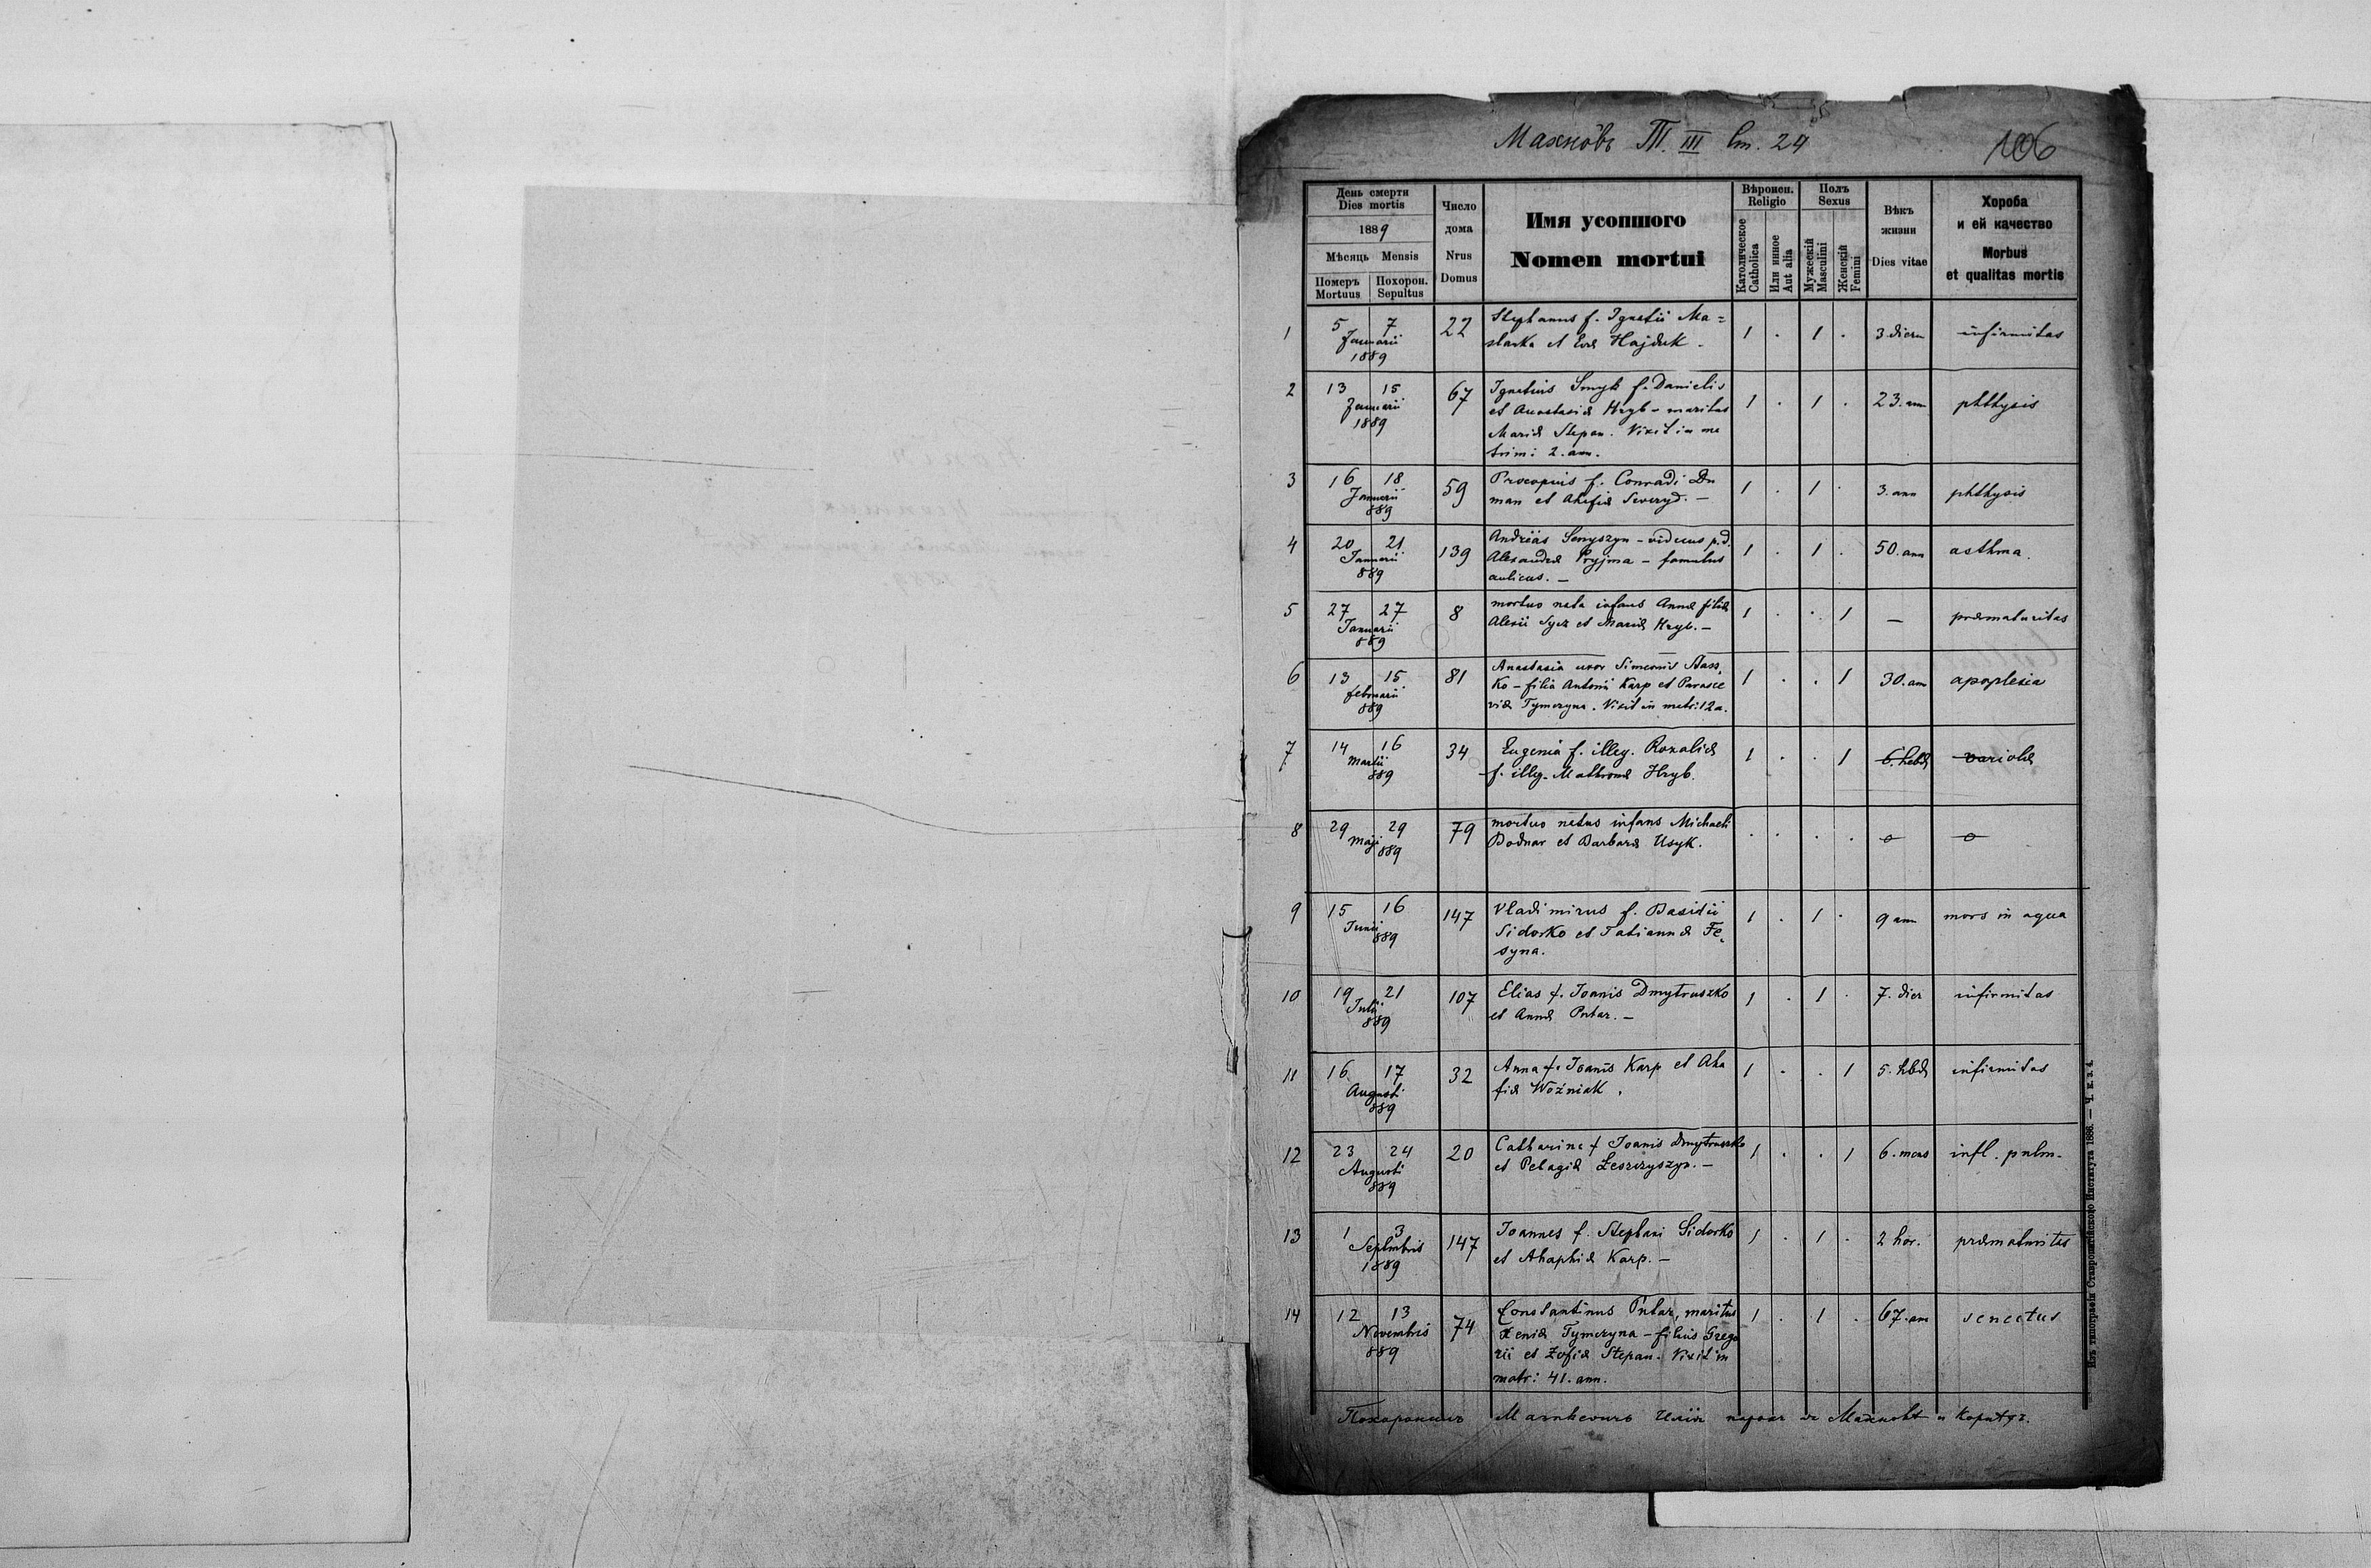 Махнôвъ Т. III Ст. 24
106
День смерти
Dies mortis
1889
Мѣсяць Mensis
Померъ Похорон.
Mortuus Sepultus
Число
дома
Nrus
Domus
Имя усопшого
Nomen mortui
Вѣроисп.
Religio
Католическое
Catholica
Или инное
Aut alia
Полъ
Sexus
Мужескій
Masculini
Женскій
Femini
Вѣкъ
жизни
Dies vitae
Хороба
и ей качество
Morbus
et qualitas mortis
1 5 7 22 Stephanus f. Ignatii Ma= 1 . 1 . 3. dierum infirmitas
Januarii slanka et Evæ Hajduk.
1889
2 13 15 67 Ignatius Smyk f. Danielis 1 . 1 . 23. ann phthysis
Januarii et Anastasiæ Hryb - maritus
1889 Mariæ Stepan. Vixit in ma
trim: 2. ann.
3 16 18 59 Procopius f. Conradi Du 1 . 1 . 3. ann phthysis
Januarii man et Ahafiæ Seweryd. —
889
4 20 21 139 Andreas Senyszyn - viduus p.d. 1 . 1 . 50. ann asthma.
Januarii Alexandræ Pryjma - famulus
889 aulicus. —
5 27 27 8 mortuo nata infans Annæ filiæ 1 . . 1 — præmaturitas
Januarii Alexii Sycz et Mariæ Hryb. —
889
6 13 15 81 Anastasia uxor Simeonis Stass 1 . . 1 30. ann apoplexia
februarii Ko - filia Antonii Karp et Parasce
889 viæ Tymczyna. Vixit in matr: 12 a.
7 14 16 34 Eugenia f. illeg. Rozaliæ 1 . . 1 6. hebd variolæ
Martii f. illeg. Mathronæ Hryb.
889
8 29 29 79 mortuo natus infans Michaeli . . . .
Maji Bodnar et Barbaræ Usyk.
889
9 15 16 147 Vladimirus f. Basilii 1 . 1 . 9 ann mors in aqua
Junii Sidorko et Tatiannæ Fe
889 syna.
10 19 21 107 Elias f. Joanis Dmytruszko 1 . 1 . 7. dier infirmitas
Julii et Annæ Putar. —
889
11 16 17 32 Anna f. Joanis Karp et Aha 1 . . 1 5. hbd infirmitas
Augusti fiæ Woźniak.
889
12 23 24 20 Catharina f Joanis Dmytruszko 1 . . 1 6. mens infl. pulm.
Augusti et Pelagiæ Leszczyszyn. —
889
13 1 3 147 Joannes f. Stephani Sidorko 1 . 1 . 2 hor. præmaturitas
Septembris et Ahaphiæ Karp. —
1889
14 12 13 74 Constantinus Putar, maritus 1 . 1 . 67. ann senectus
Novembris Xeniæ Tymczyna - filius Grego
889 rii et Zofiæ Stepan. Vixit in
matr: 41. ann.
Похоронилъ Матковичъ Илія парох въ Махновѣ и
Изъ типографіи Ставропигійского Института 1886. — Ч. к. з. 4.